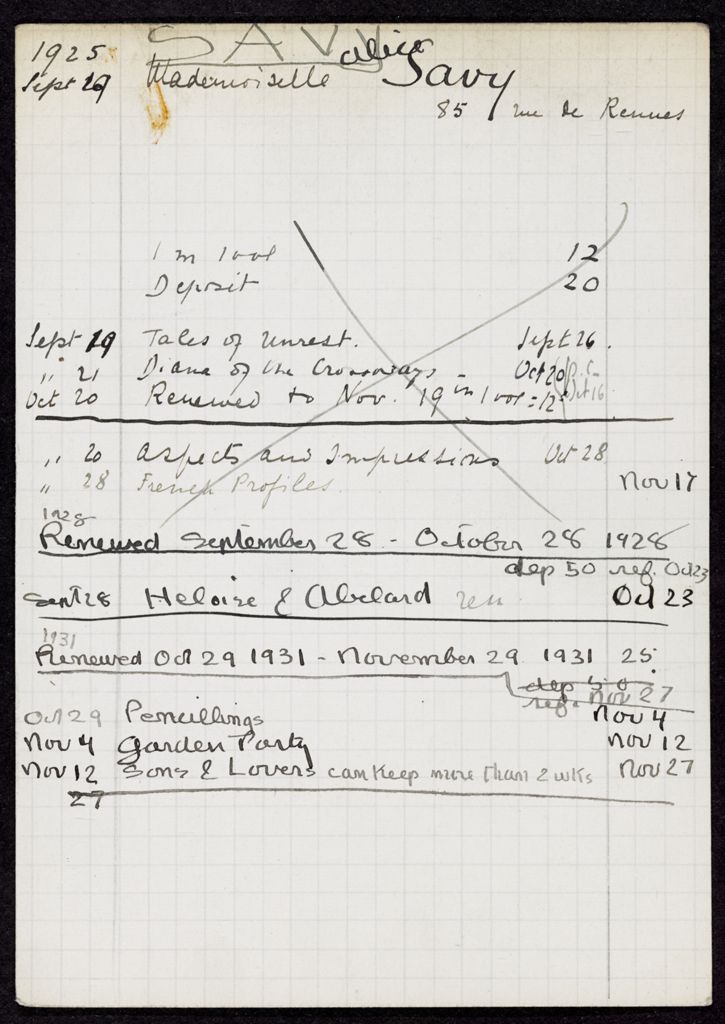 SAVY
1925 Mademoiselle alice Savy
Sept 19
85 rue de Rennes
1 m 1 vol 12
Deposit 20
Sept 19 Tales of Unrest. Sept 26.
" 21 Diana of the Crossways - Oct 20 (p.c. Oct 16
Oct 20 Renewed to Nov. 19 1m 1 vol = 12
" 20 Aspects and Impressions Oct 28
" 28 French Profiles. Nov 17
1928
Renewed September 28 - October 28 1928
dep 50 ref. Oct 23
Sept 28 Heloise & Abelard ren Oct 23
1931
Renewed Oct 29 1931 - November 29 1931 25
dep 50
ref. Nov 27
Oct 29 Pencillings Nov 4
Nov 4 Garden Party Nov 12
Nov 12 Sons & Lovers can keep more than 2 wks Nov 27
27